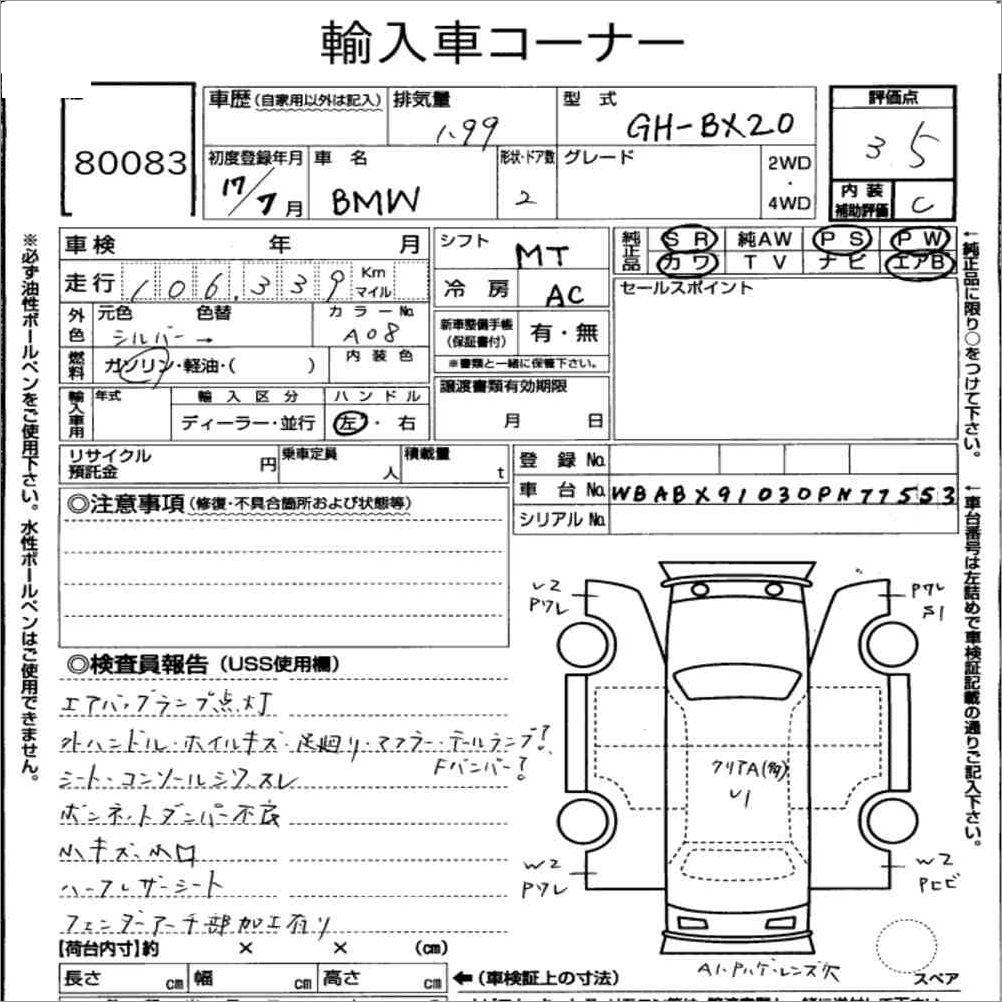 輸入車コーナー
80083
車歴 (自家用以外は記入) 排気量 1.99 型式 GH-BX20 評価点 3.5
初度登録年月 17/7月 車名 BMW 形状・ドア数 2 グレード 2WD・4WD 内装補助評価 C
車検 年 月 シフト MT 純正品 SR 純AW PS PW
カワ TV ナビ エアB
走行 106,339 Km マイル 冷房 AC セールスポイント
外色 元色 シルバー → 色替 カラーNo. A08 新車整備手帳(保証書付) 有・無
※書類と一緒に保管下さい。
燃料 ガソリン・軽油・( ) 内装色 譲渡書類有効期限 月 日
輸入車用 年式 輸入区分 ディーラー・並行 ハンドル 左・右
リサイクル預託金 円 乗車定員 人 積載量 t 登録No.
車台No. WBABX91030PN77553
シリアルNo.
◎注意事項 (修復・不具合箇所および状態等)
◎検査員報告 (USS使用欄)
エアバッグランプ点灯
外ハンドル・ホイルキズ・足廻り・マフラー・テールランプ?
Fバンパー?
シート・コンソールシワ、スレ
ボンネットダンパー不良
小キズ、小凹
ハーフレザーシート
フェンダーアーチ部加工有り
【荷台内寸】約 × × (cm)
長さ cm 幅 cm 高さ cm ←(車検証上の寸法)
U2
Pワレ
Pワレ
S1
クリアA(多)
U1
W2
Pワレ
W2
Pヒビ
A1・Pハゲ・レンズ欠
スペア
※必ず油性ボールペンをご使用下さい。水性ボールペンはご使用できません。
←純正品に限り○をつけて下さい。
←車台番号は左詰めで車検証記載の通りご記入下さい。